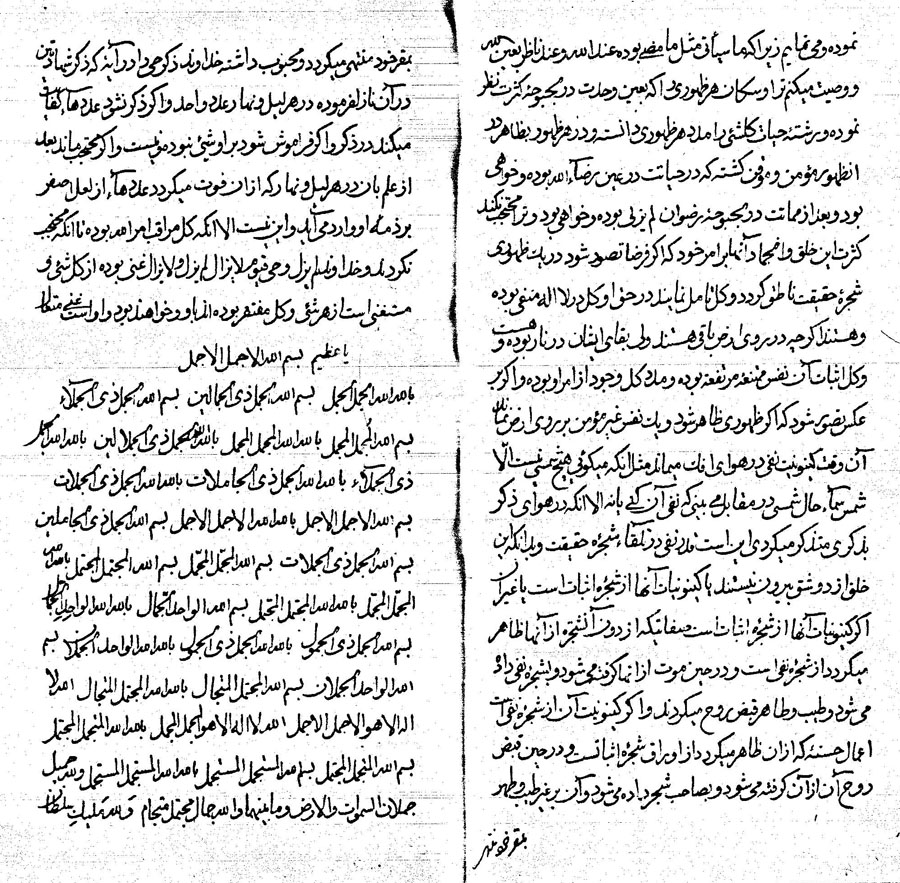 نموده و می‌نمایم زیرا که ما سیأتی مثل ما مضی بوده عند الله و عند ناظر بعین الله
و وصیت میکنم ترا و سکان هر ظهوری را که بعین وحدت در بحبوحه کثرت نظر
نموده و رشته حیات کلشئی را مدد هر ظهوری دانسته و در هر ظهور بظاهر در
انظهور مؤمن و موقن گشته که در حیاتت در عین رضاء الله بوده و خواهی
بود و بعد از مماتت در بحبوحه رضوان لم یزلی بوده و خواهی بود و ترا محتجب نکند
کثرت این خلق و احتجاب آنها بر امر خود که اگر فرضا تصور شود در یک ظهوری
شجرهٔ حقیقت ناطق گردد و کل تأمل نمایند در حق او کل در لا اله منفی بوده
و هستند اگر چه در روی ارض باقی هستند ولی بقای ایشان در نار بوده و هست
و کل اثبات آن نفس ممتنعه مرتفعه بوده و مدد کل وجود از امر او بوده و اگر بر
عکس تصور شود که اگر ظهوری ظاهر شود و یک نفس غیر مؤمن بر روی ارض نماند
آن وقت کینونیت نفی در هوای افک میماند مثل آنکه میگوئی هیچ شمسی نیست الا
شمس سماء حال شمسی در مقابل می بینی که نفی آن کنی یا نه الا آنکه در هوای ذکر
بذکری متذکر میگردی این است قدر نفی در تلقاء شجرهٔ حقیقت و بدانکه این
خلق از دو شق بیرون نیستند یا کینونیات آنها از شجرهٔ اثبات است یا غیر آن
اگر کینونیات آنها از شجرهٔ اثبات است صفاتیکه از دون آن شجره از آنها ظاهر
میگردد از شجرهٔ نفی است و در حین موت از آنها گرفته می شود و بشجرهٔ نفی داده
می شود و طیب و طاهر قبض روح میگردند و اگر کینونیت آن از شجرهٔ نفی است
اعمال حسنه که از آن ظاهر میگردد از اوراق شجرهٔ اثبات است و در حین قبض
روح آن از آن گرفته می شود و بصاحب شجره داده می شود و آن بر غیر طیب و طهر
بمقر خود منتهی
بمقر خود منتهی میگردد و محبوب داشته خداوند ذکر حی را در آینه که ذکر شهادتین
در آن نازل فرموده در هر لیل و نهار عدد واحد و اگر ذکر نشود عدد هاء کفایت
میکند در ذکر و اگر فراموش شود بر او شیئ نبوده و نیست و اگر محتجب ماند بعد
از علم بآن در هر لیل و نهار که از آن فوت میگردد عدد هاء از لعل اصفر
بر ذمه او وارد می آید و این نیست الا آنکه کل مراقب امر الله بوده تا آنکه محتجب
نگردند و خداوند لم یزل و حی قیوم لا یزال لم یزل و لا یزال غنی بوده از کل شئی و
مستغنی است از هر شئی و کل مفتقر بوده اند باو و خواهند بود و او است غنی متعال
یا عظیم بسم الله الاجمل الاجمل
بالله الله الجمل الجمل بسم الله الجمل ذی الجمالین بسم الله الجمل ذی الجملاء
بسم الله المجمل المجمل بالله الله المجمل المجمل بالله الله الجمل ذی الجملالین بالله الله الجمل
ذی الجملاء بالله الله الجمل ذی الجاملات بالله الله الجمل ذی الجملات
بسم الله الاجمل الاجمل بالله الله الاجمل الاجمل بسم الله الجمل ذی الجاملین
بسم الله الجمل ذی الجملات بسم الله المجمل المجمل بسم الله المجتمل المجتمل بالله الله
المجتمل المجتمل بالله الله المجتمل المجتمل بسم الله الواحد الجمال بالله الله الواحد الجمال
بسم الله الجمل ذی الجمول بالله الله الجمل ذی الجمول بالله الله الواحد الجملان بسم
الله الواحد الجملان بسم الله المجتمل المتجال بالله الله المجتمل المتجال الله لا
اله الا هو الاجمل الاجمل الله لا اله الا هو الجمل الجمل بالله الله المتجمل المجتمل
بسم الله المتجمل المجتمل بسم الله المستجمل المستجمل بالله الله المستجمل المستجمل ولله جمیل
جملان السموات والارض وما بینهما والله جمال مجتمل متجامل ولله ملیک سلطان